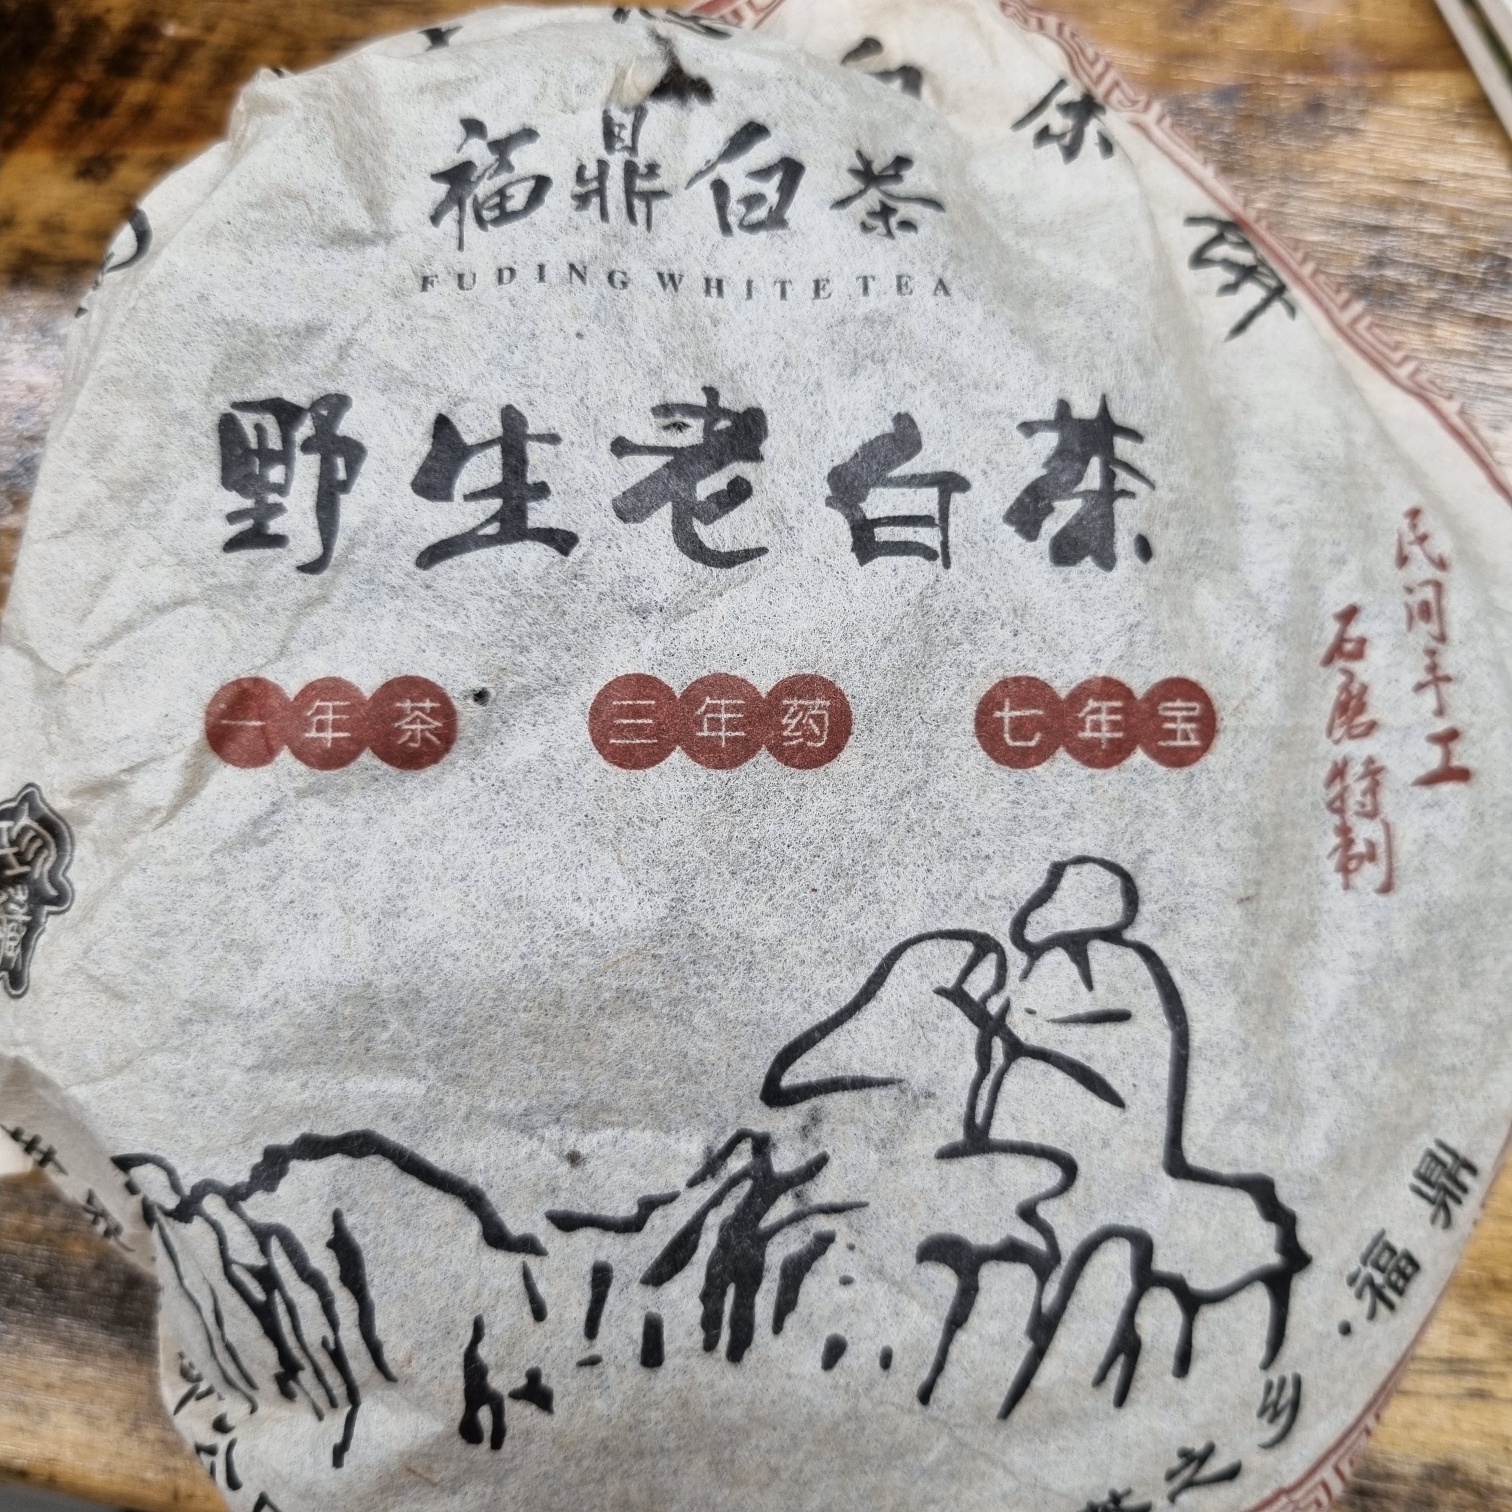 福鼎白茶
FUDING WHITE TEA
野生老白茶
一年茶 三年药 七年宝
民间手工
石磨特制
白茶饼
福鼎
之乡